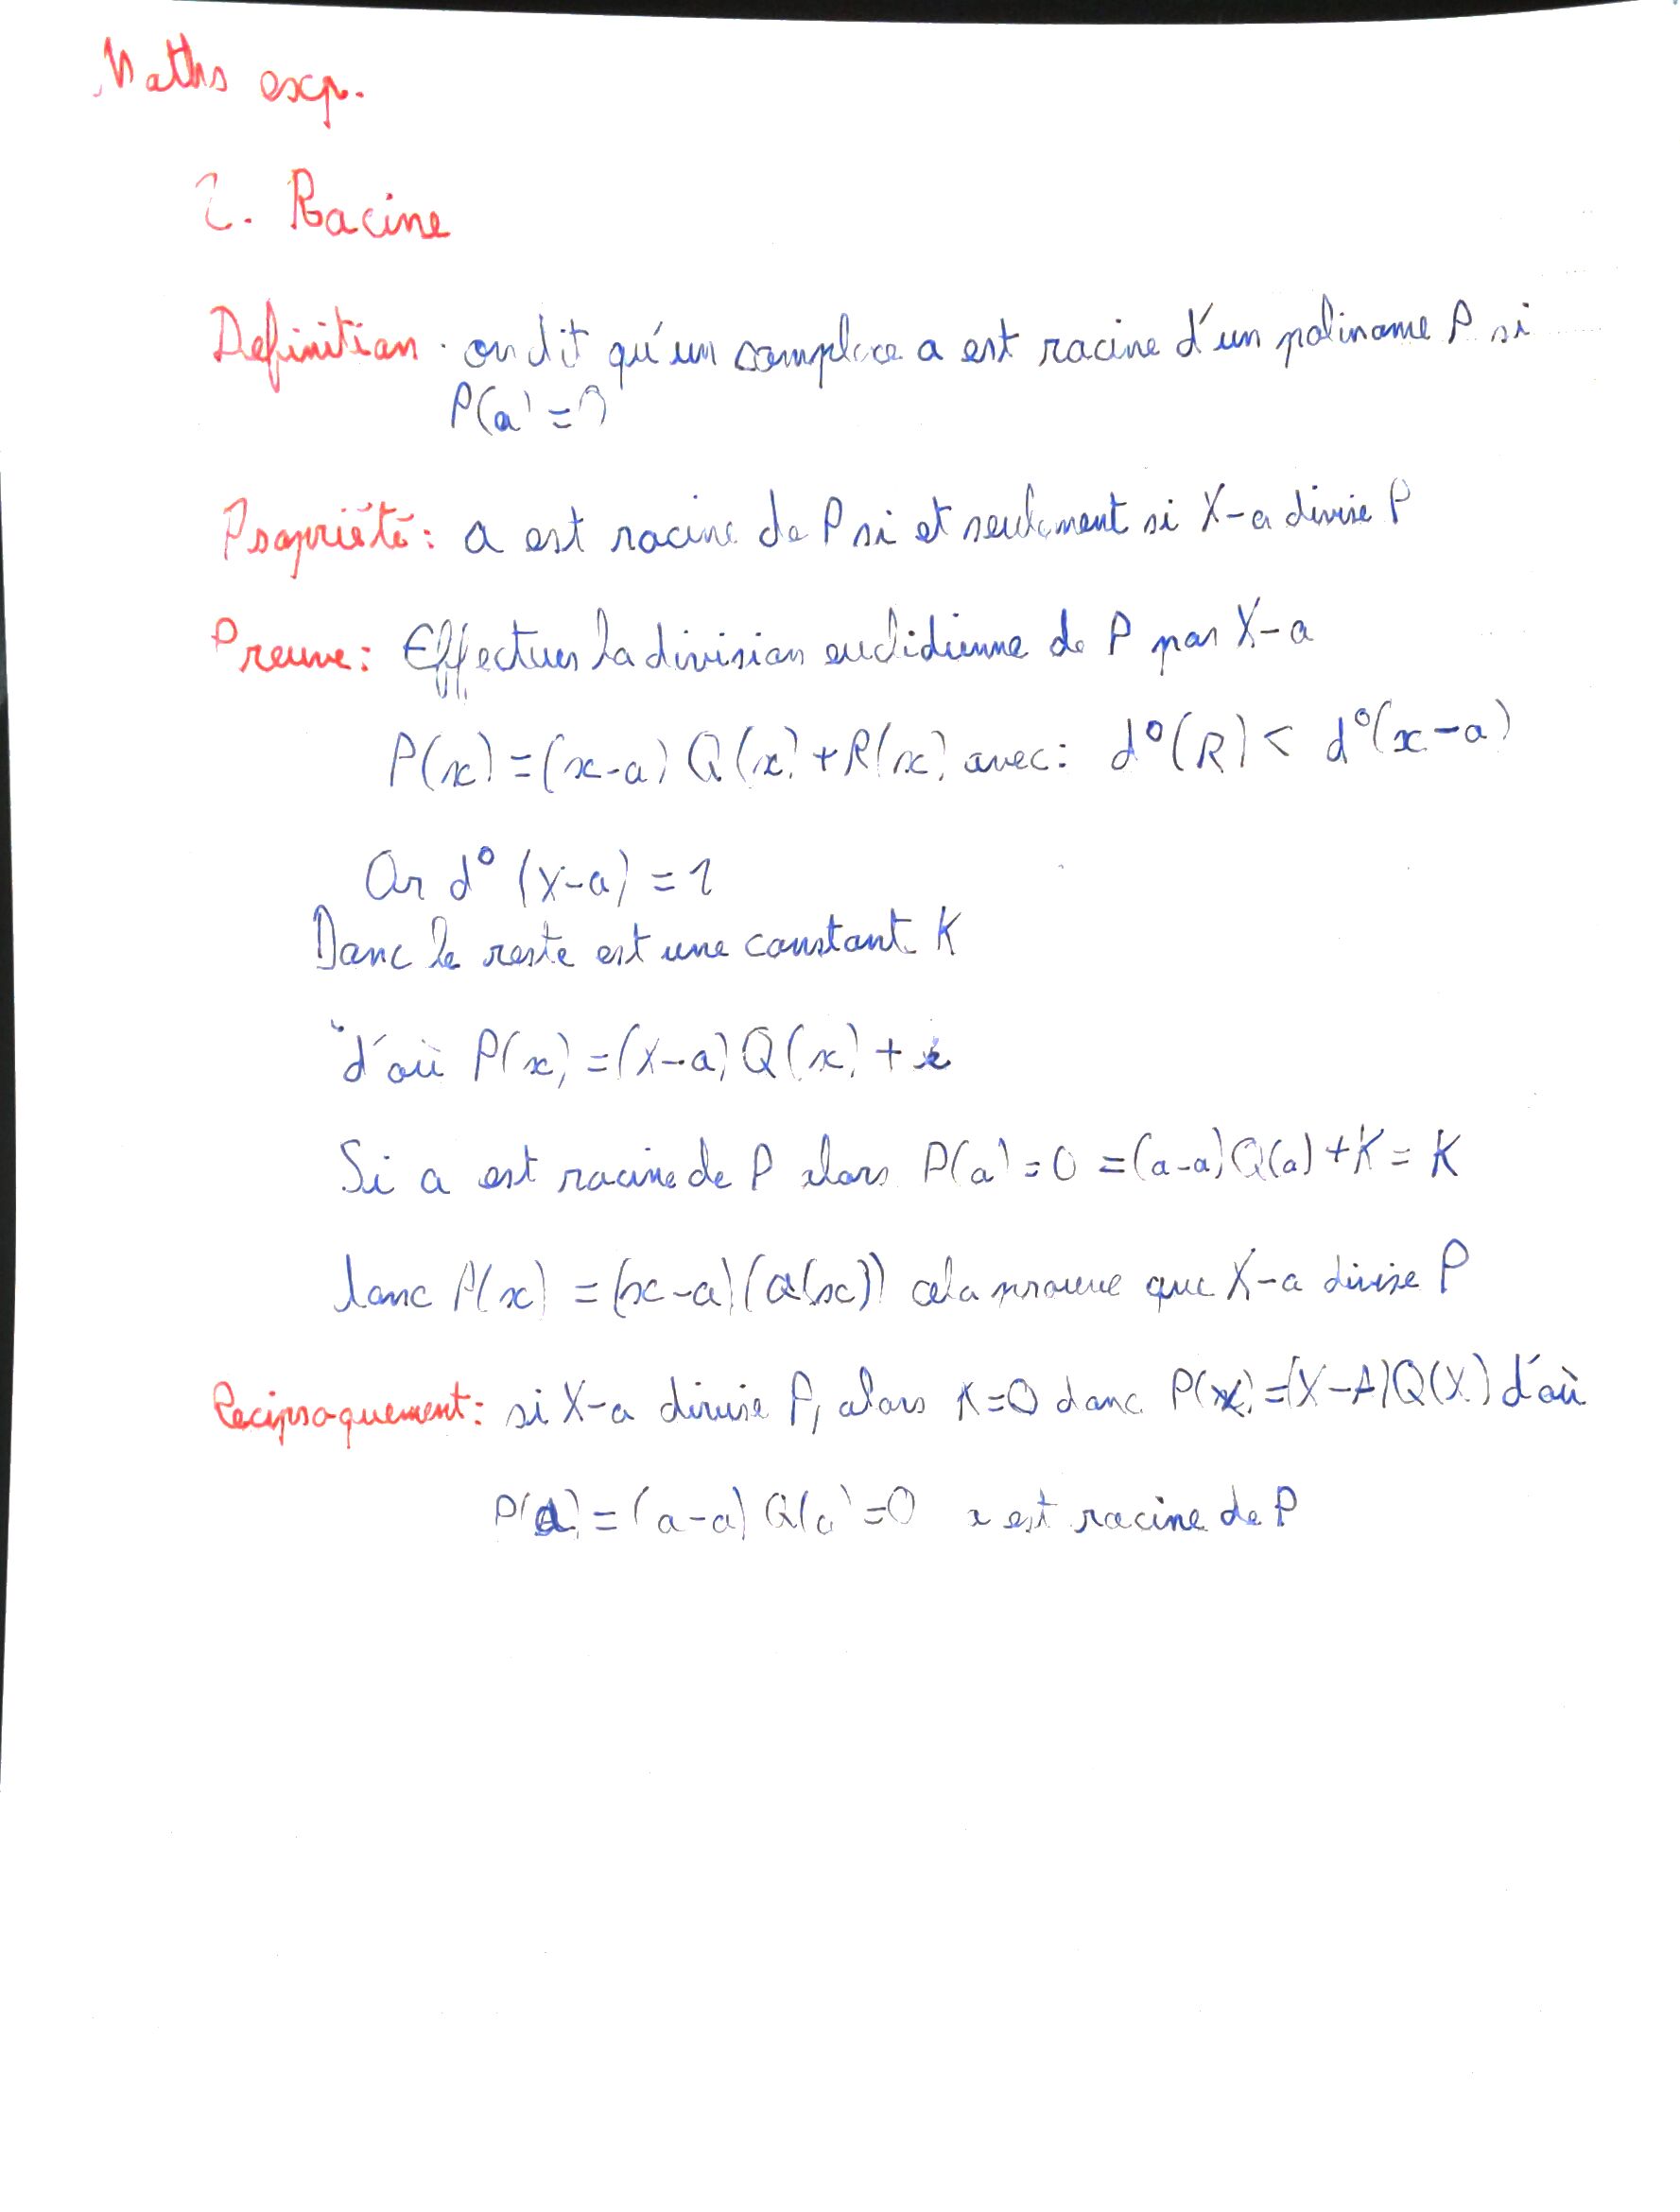 Maths exp.
2. Racine
Definition : on dit qu'un complexe a est racine d'un polinome P si
P(a) = 0
Propriété : a est racine de P si et seulement si X-a divise P
Preuve : Effectuer la division euclidienne de P par X-a
P(x) = (x-a) Q(x) + R(x) avec : d°(R) < d°(x-a)
Or d° (X-a) = 1
Donc le reste est une constante K
d'où P(x) = (X-a) Q(x) +
Si a est racine de P alors P(a) = 0 = (a-a) Q(a) + K = K
donc P(x) = (x-a) (Q(x)) cela prouve que X-a divise P
Reciproquement : si X-a divise P, alors K=0 donc P(X) = (X-A) Q(X) d'où
P(a) = (a-a) Q(a) = 0 est racine de P